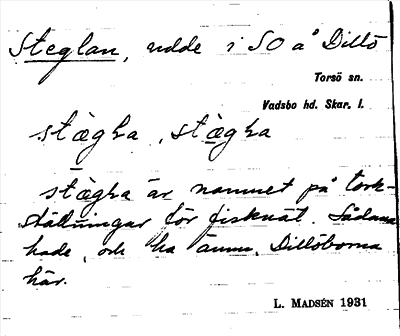 Steglan, udde i SO å Dillö
Torsö sn.
Vadsbo hd. Skar. l.
stægḷa, stægḷa
stægḷa är namnet på tork-
ställningar för fisknät. Sådana
hade, och ha ännu, Dillöborna
här.
L. MADSÉN 1931